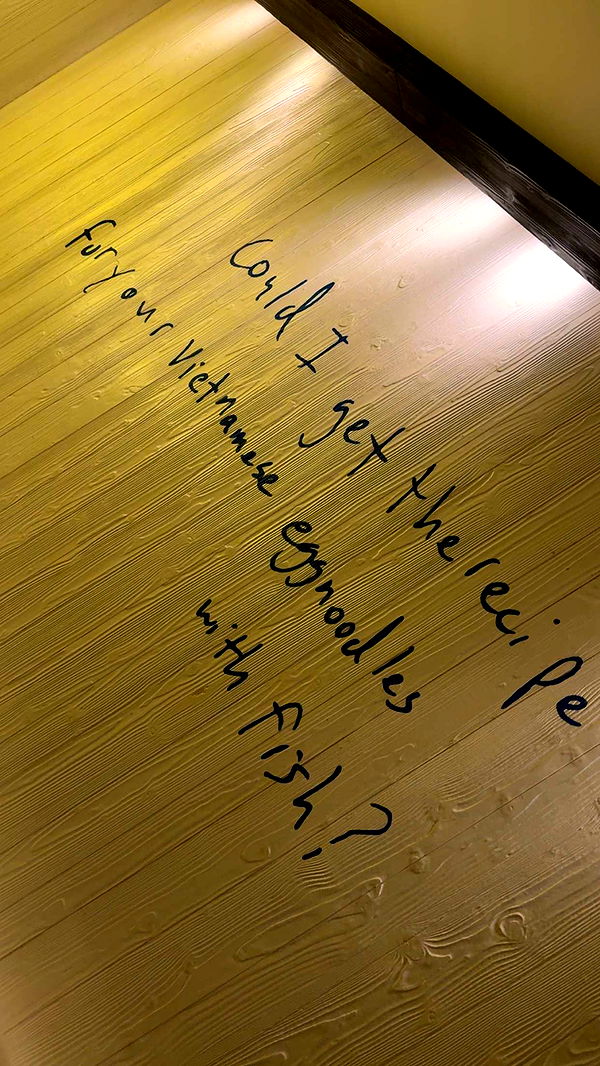 Could I get the recipe
for your Vietnamese eggnoodles
with fish?